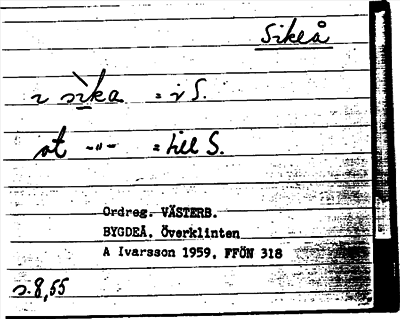 Sikeå
i sìka = i S.
at -"- = till S.
Ordreg. VÄSTERB.
BYGDEÅ, Överklinten
A Ivarsson 1959, FFÖN 318
s.8,65